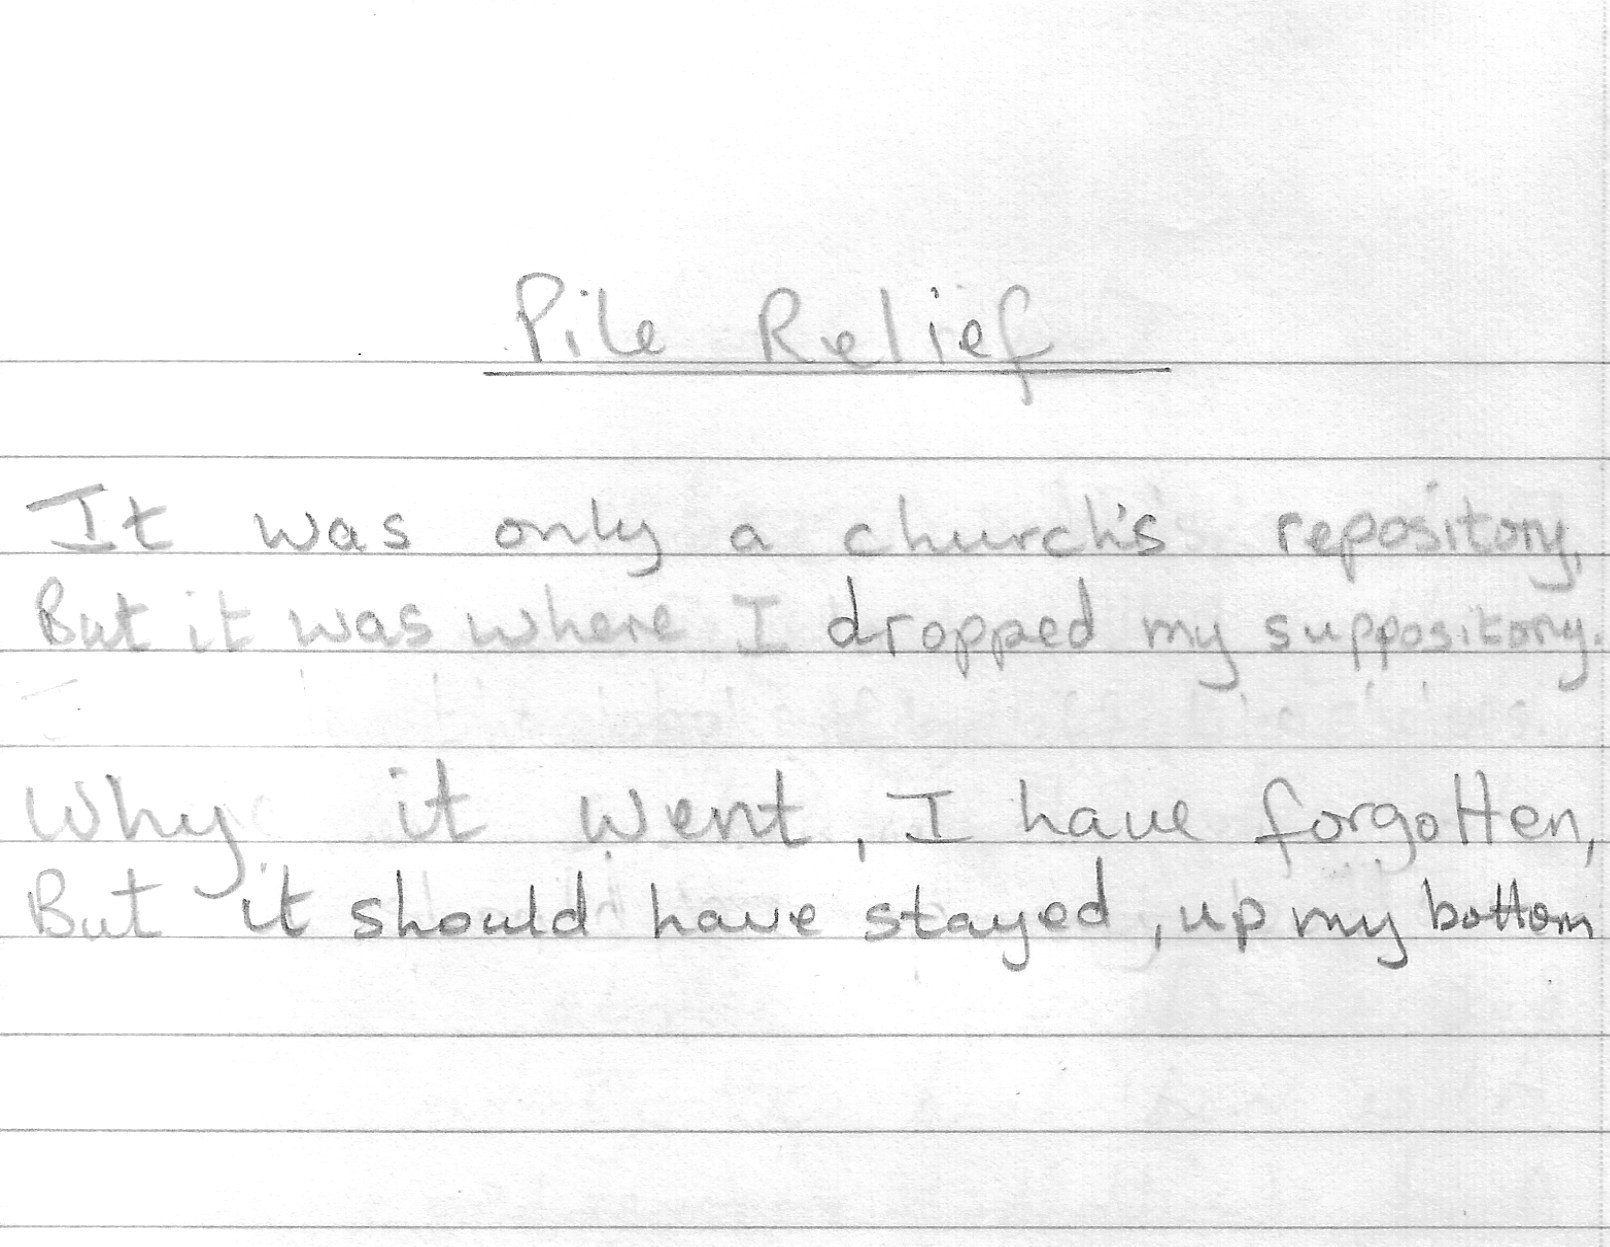 Pile Relief
It was only a church's repository,
But it was where I dropped my suppository.
Why it went, I have forgotten,
But it should have stayed, up my bottom